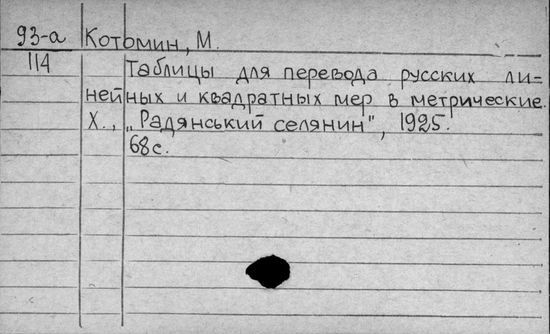 93-а Котомин, М.
114
Таблицы для перевода русских ли-
нейных и квадратных мер в метрические.
Х., „Радянський селянин", 1925.
68с.